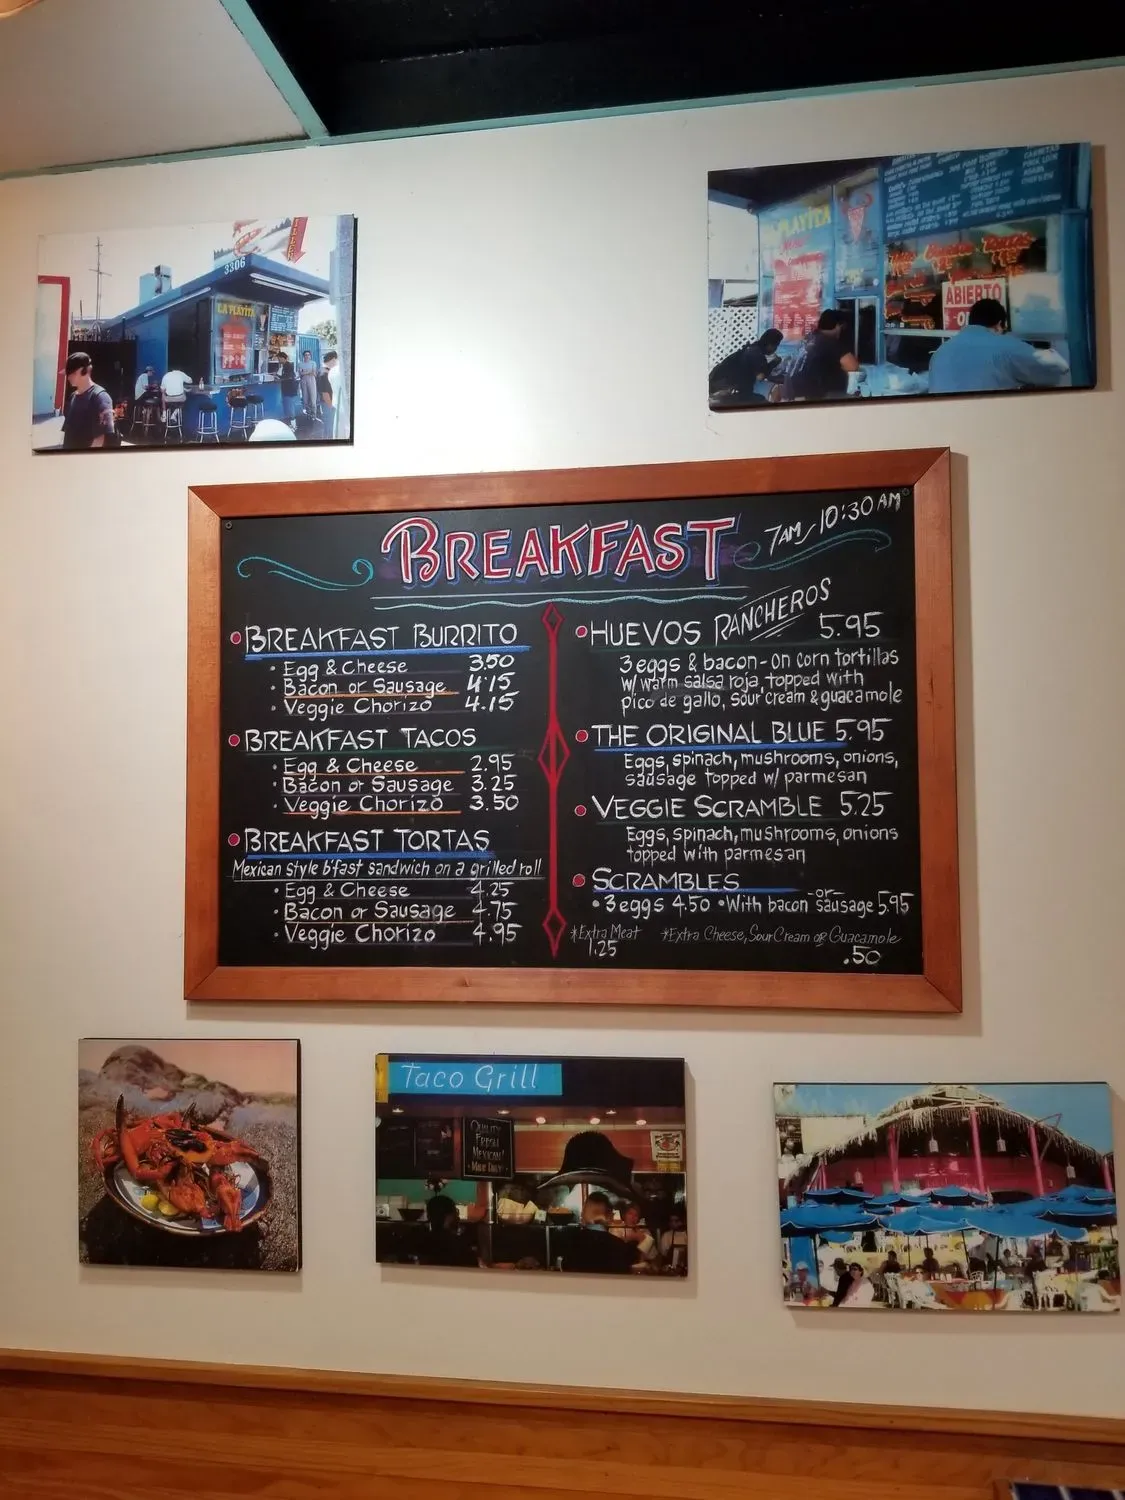 3306
LA PLAYITA
PLAYITA
ABIERTO
BREAKFAST
7AM-10:30AM
BREAKFAST BURRITO
• Egg & Cheese 3.50
• Bacon or Sausage 4.15
• Veggie Chorizo 4.15
BREAKFAST TACOS
• Egg & Cheese 2.95
• Bacon or Sausage 3.25
• Veggie Chorizo 3.50
BREAKFAST TORTAS
Mexican style b'fast sandwich on a grilled roll
• Egg & Cheese 4.25
• Bacon or Sausage 4.75
• Veggie Chorizo 4.95
HUEVOS RANCHEROS 5.95
3 eggs & bacon - on corn tortillas
w/ warm salsa roja topped with
pico de gallo, sour cream & guacamole
THE ORIGINAL BLUE 5.95
Eggs, spinach, mushrooms, onions,
sausage topped w/ parmesan
VEGGIE SCRAMBLE 5.25
Eggs, spinach, mushrooms, onions
topped with parmesan
SCRAMBLES
• 3 eggs 4.50 • With bacon -or- sausage 5.95
*Extra Meat 1.25
*Extra Cheese, Sour Cream or Guacamole .50
Taco Grill
QUALITY
FRESH
MEXICAN!
MADE DAILY